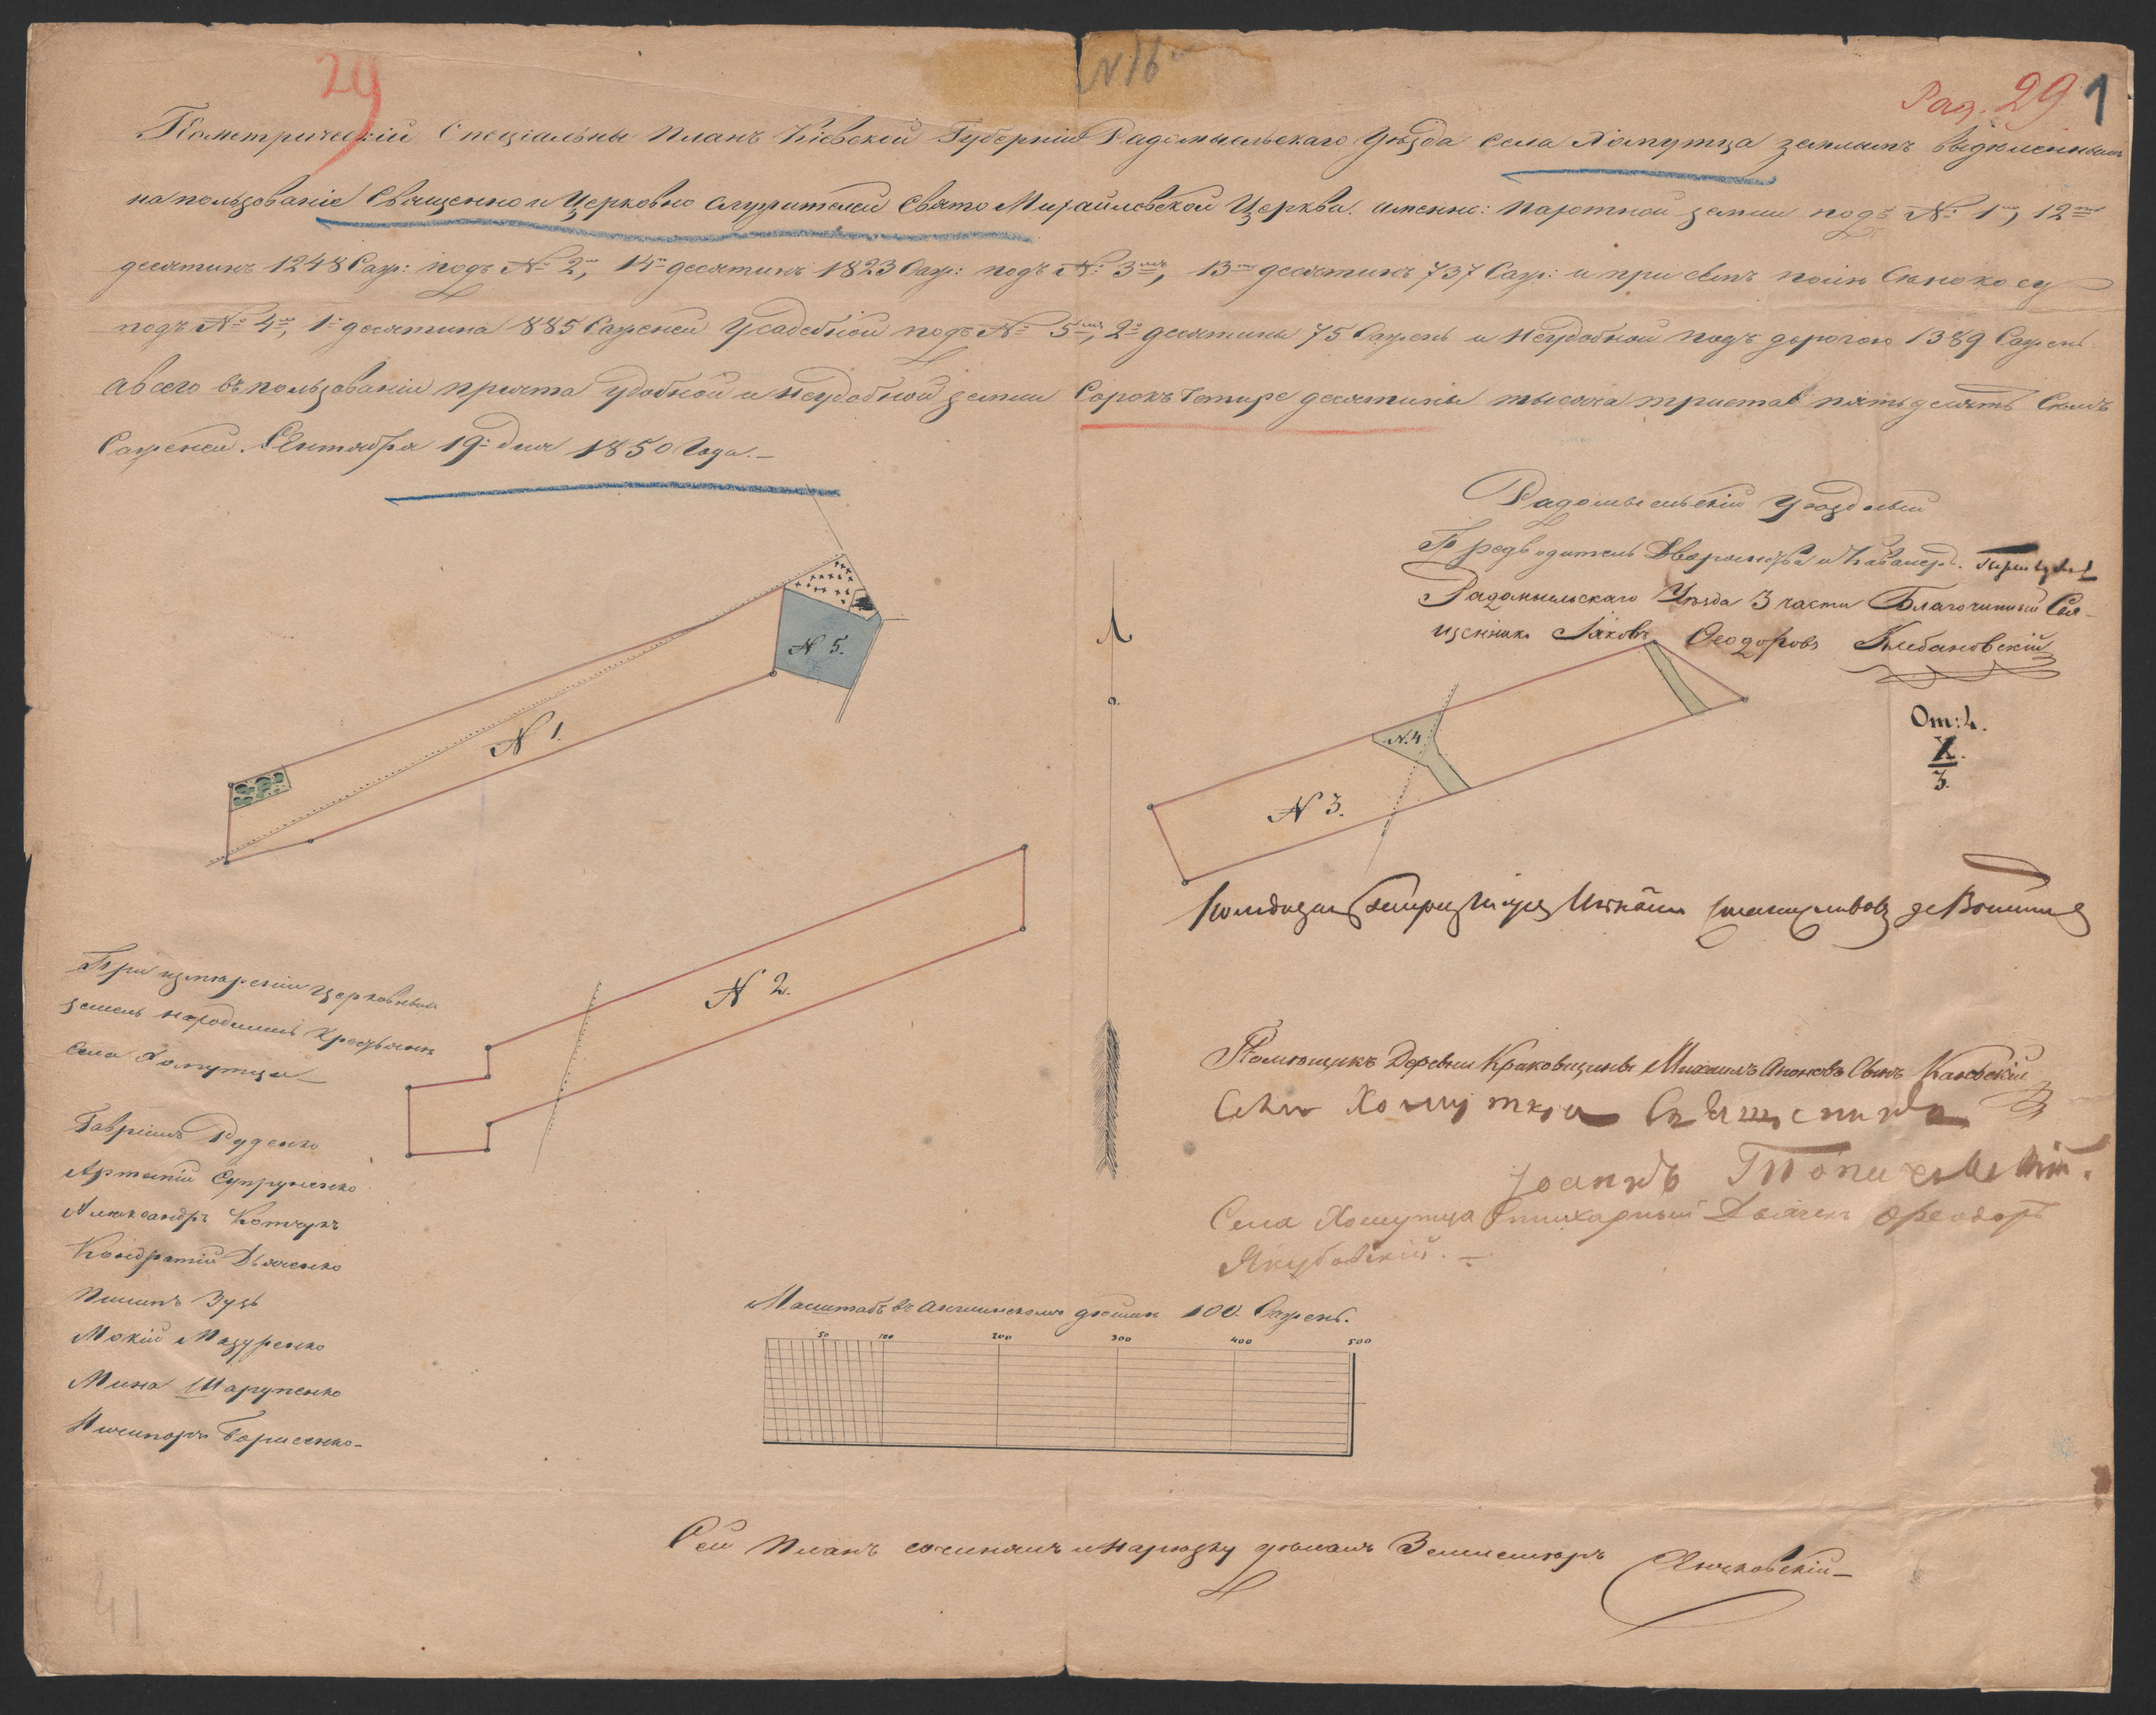 29
N 16
Рад. 29 1
Геометрическій Спеціальны Планъ Кіевской Губерніи Радомысльскаго Уезда села Хомутца землямъ выделеннымъ
на пользованіе Священно и Церковно служителей Свято Михайловской Церквы. именно: пахотной земли подъ №: 1мъ, 12ть
десятинъ 1248 Саж: подъ №: 2мъ, 14ть десятинъ 1823 Саж: подъ №: 3мъ, 13ть десятинъ 737 Саж: и при семъ поле Сенокосу
подъ №: 4мъ, 1на десятина 885 Саженей Усадебной подъ №: 5мъ, 2е десятины 75 Сажень и Неудобной подъ дорогою 1389 Сажень
а всего въ пользованіи причта удобной и неудобной земли Сорокъ Четире десятины тысяча триста пятьдесятъ Семъ
Саженей. Сентября 19го дня 1850 Года.
Радомысльскій Уездный
Предводитель Дворянства и Кавалеръ.
Радомысльскаго Уезда 3 части Благочинный Свя-
щенникъ Іаковъ Феодоровъ Клебановскій
N 5.
N 1.
N.4
N 3.
От: 4.
X.
3.
N 2.
При измереніи церковныхъ
земель находились Хрестьяне
села Хомутца
Гавріилъ Руденко
Артемій Супруненко
Александръ Котчукъ
Кондратій Дьяченко
Пилипъ Зузь
Мокій Мазуренко
Мина Шарупенко
Ничипоръ Борисенко
Помещикъ Деревни Краковщины Михаилъ Антоновъ Сынъ Каневскій
Села Хомутца Священникъ
Іоаннъ
Села Хомутца Стихарный Дьячекъ Феодоръ
Якубовскій.
Масштабъ въ Англинскомъ дюйме 100. Сажень.
50 100 200 300 400 500
Сей Планъ сочинялъ и Нарезку делалъ Землемеръ
41